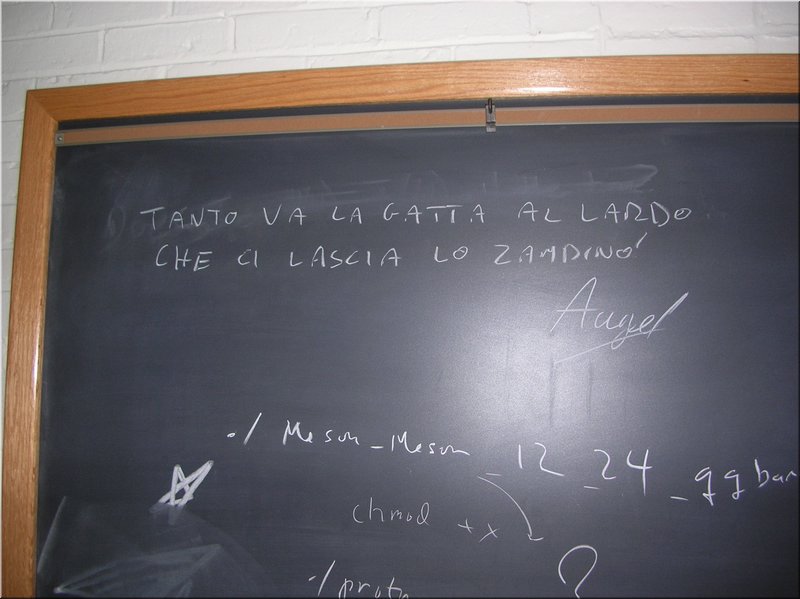 TANTO VA LA GATTA AL LARDO
CHE CI LASCIA LO ZAMPINO'
Angel
./ Meson_Meson_12_24_qqbar
chmod +x
?
./prot